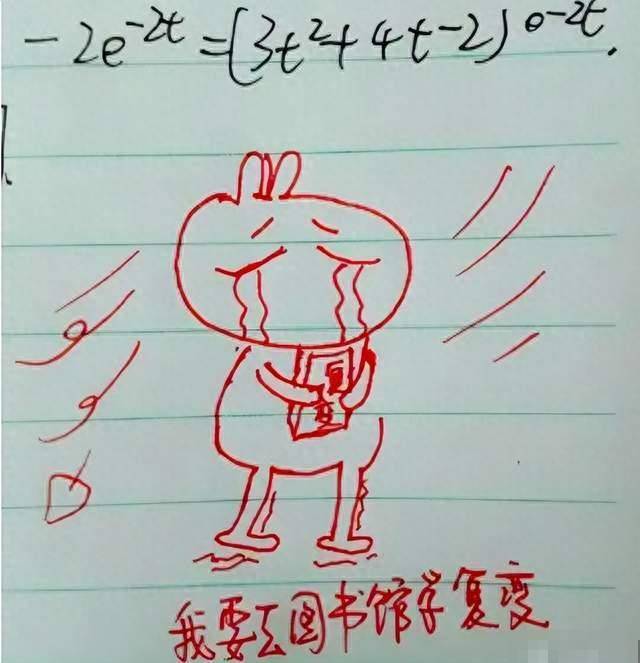 -2e^{-2t} = (3t^2+4t-2) e^{-2t}.
复
变
我要去图书馆学复变